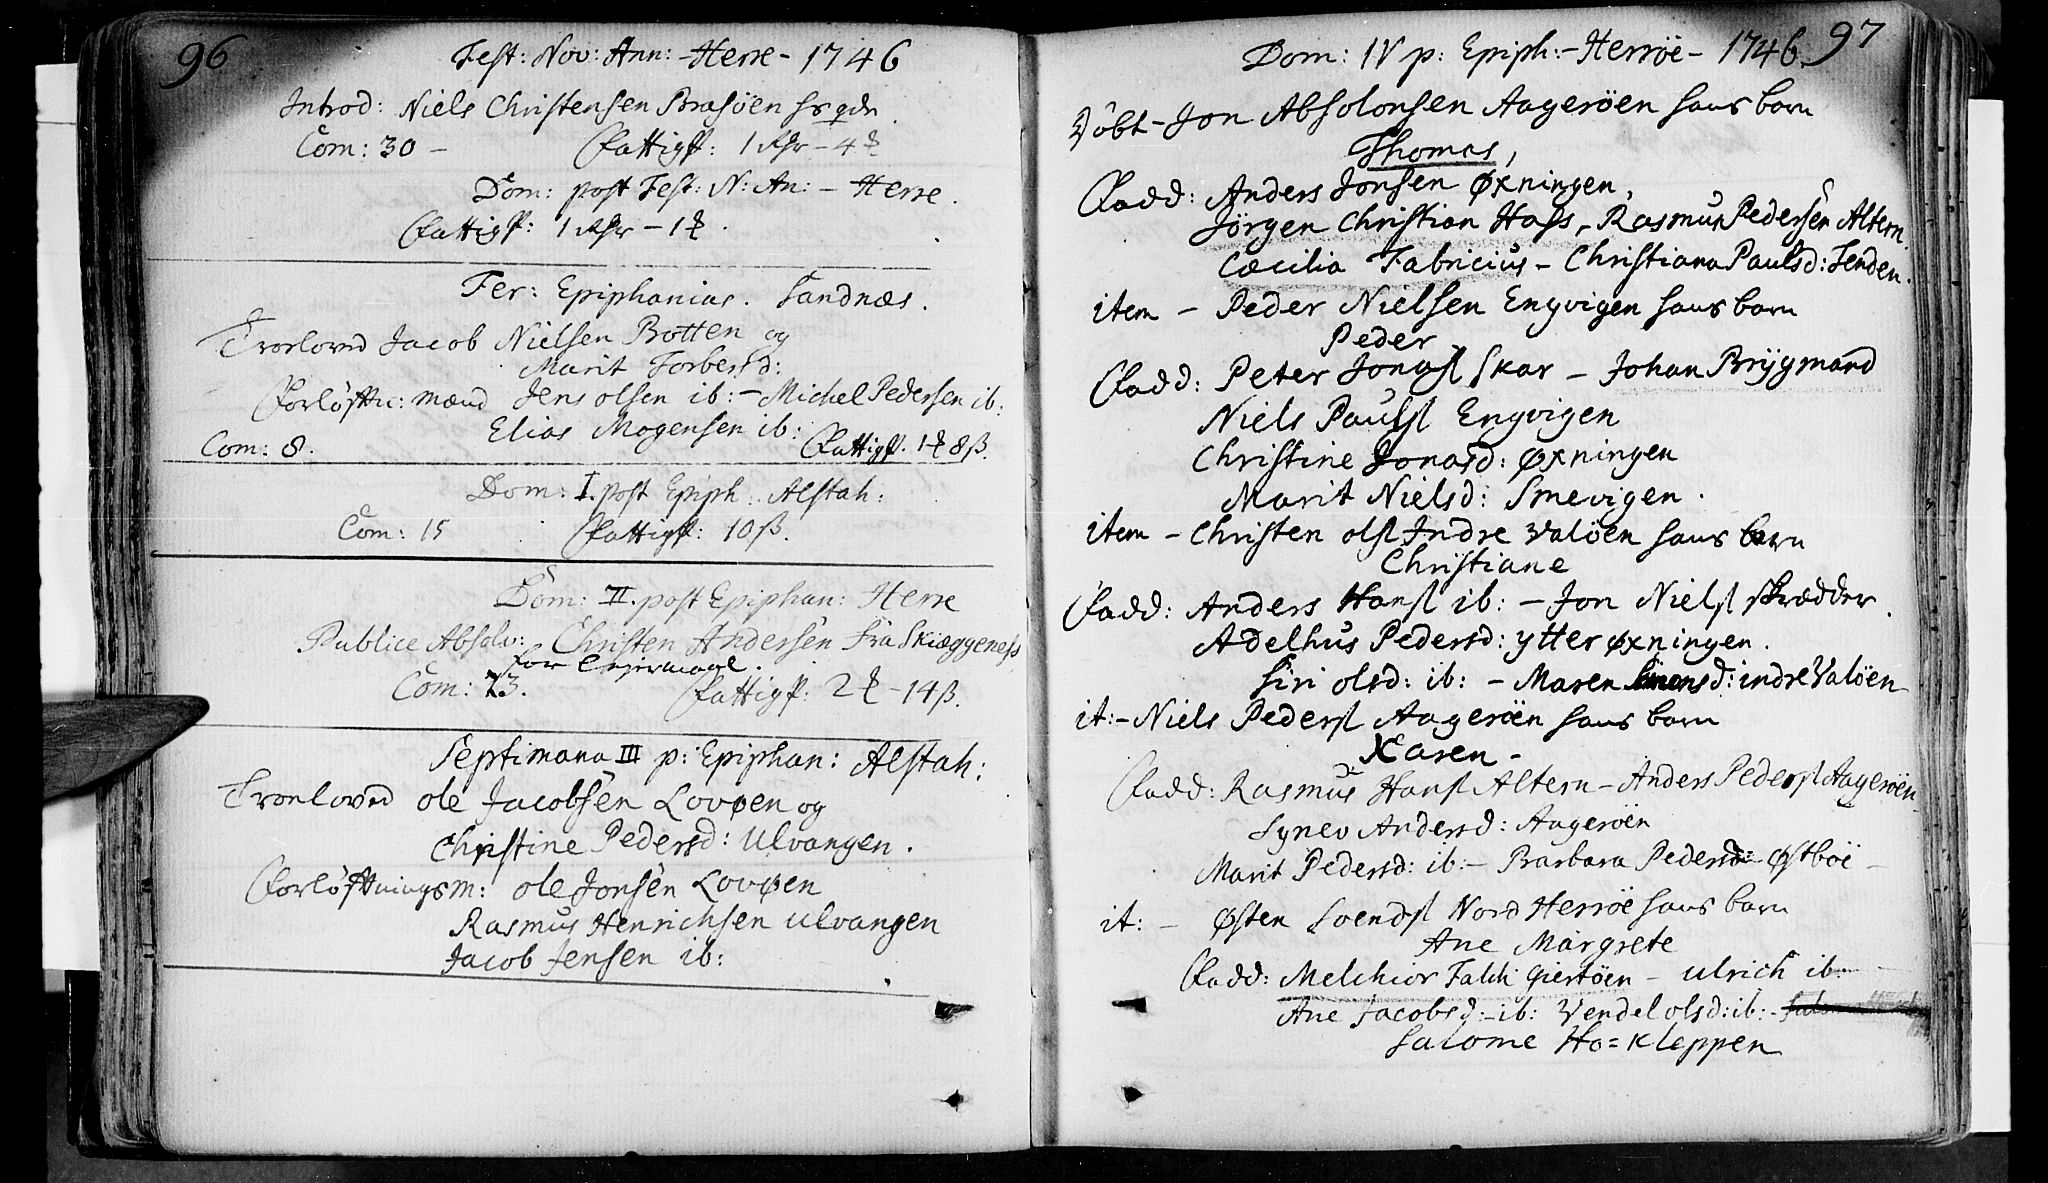 96
Fest: Nov: Ann: - Herre - 1746
Introd: Niels Christensen Brasöen hs qde
Com: 30 - Fattigp: 1 Rhr - 4
Dom: post Fest: N: An: - Herre.
Fattigp: 1 Rhr - 1
Fer: Epiphanias. Sandnæs.
Troeloved Jacob Nielsen Botten og
Marit Torbersd:
Forløftn: mænd Jens olsen ib: - Michel Pedersen ib:
Elias Mogensen ib:
Com: 8. Fattigp. 1 8ß.
Dom: I. post Epiph. Alstah:
Com: 15 Fattigp: 10ß.
Dom: II. post Epiphan: Herre
Publice Absolv: Christen Andersen fra Skiæggenæss
for Leyermaal.
Com: 23. Fattigp: 2 - 14ß.
Septimana III p: Epiphan: Alstah:
Troeloved ole Jacobsen Lovøen og
Christine Pedersd: Ulvangen.
Forløftningsm: ole Jonsen Lovøen
Rasmus Henrichsen ulvangen
Jacob Jensen ib:
97
Dom: IV p: Epiph: - Herröe - 1746.
Döbt - Jon Absolonsen Aageröen hans barn
Thomas,
Fadd: Anders Jonsen Øxningen,
Jörgen Christian Hass, Rasmus Pedersen Altern.
Cæcilia Fabricius - Christiana Paulsd: Tenden.
item - Peder Nielsen Engvigen hans barn
Peder
Fadd: Peter Jonass Skar - Johan Brygmand
Niels Pauls Engvigen
Christine Jonasd: Øxningen
Marit Nielsd: Smevigen.
item - Christen ols Indre Valöen hans barn
Christiane
Fadd: Anders Hans ib: - Jon Niels skrædder.
Adelhus Pedersd: ytter øxningen.
Siri olsd: ib: - Maren Simensd: indre Valöen
it: - Niels Peders Aageröen hans barn
Karen -
Fadd: Rasmus Hans Altern - Anders Peders Aageröen
Synev Andersd: Aageröen
Marit Pedersd: ib: - Barbara Pedersd: Østböe -
it: - Østen Svends Nord Herröe hans barn
Ane Margrete
Fadd: Melchior Falch Giertöen - ulrich ib:
Ane Jacobsd: - ib: Vendel olsd: ib: -
Salome Ho=Kleppen